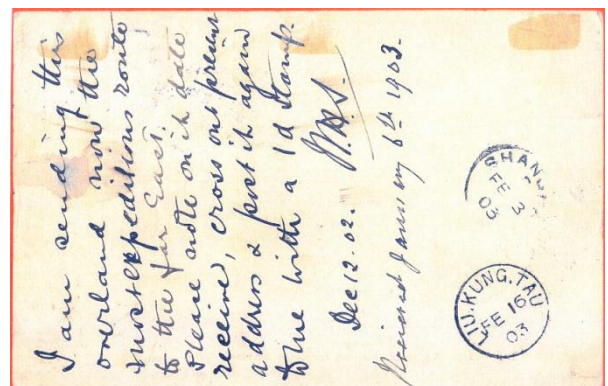 I am sending this
overland now the
most expeditious route
to the far East.
Please note on it date
received, cross out present
address & post it again
to me with a 1d stamp.
Dec 12. 02.
Received January 6th 1903.
SHANG
FE 3
03
LIU.KUNG.TAU
FE 16
03